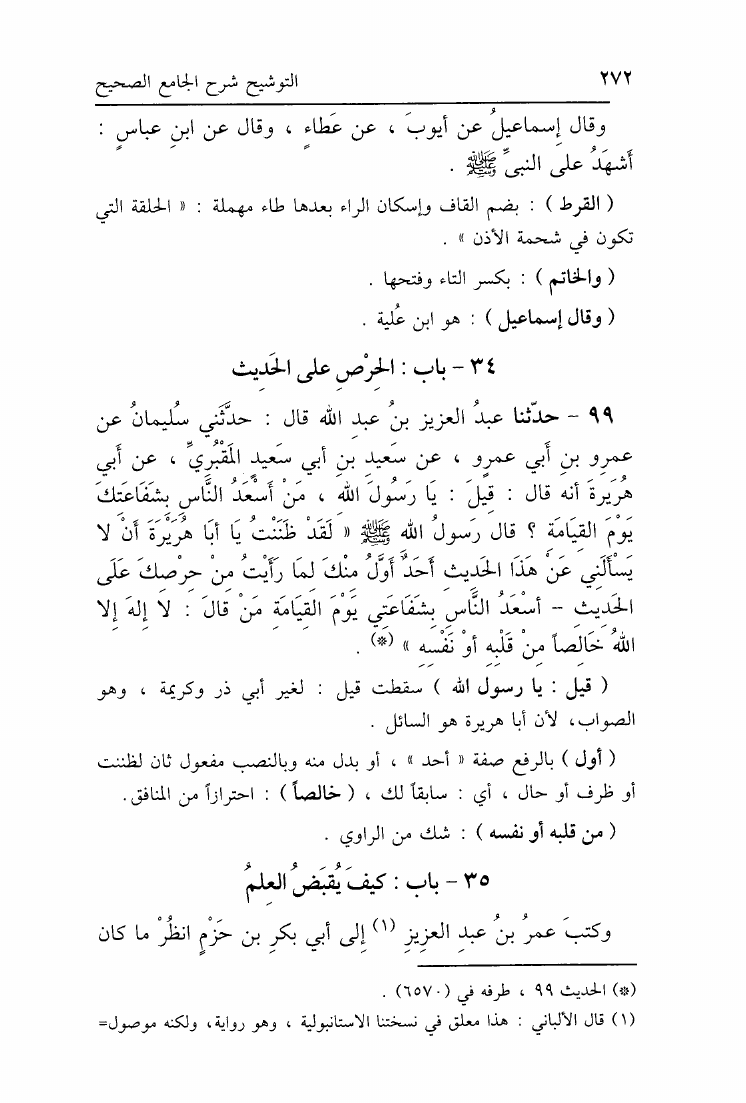 ٢٧٢ التوشيح شرح الجامع الصحيح
وقال إسماعيلُ عن أيوبَ ، عن عَطاءٍ ، وقال عن ابنِ عباسٍ :
أَشهَدُ على النبيِّ ﷺ .
( القرط ) : بضم القاف وإسكان الراء بعدها طاء مهملة : « الحلقة التي
تكون في شحمة الأذن » .
( والخاتم ) : بكسر التاء وفتحها .
( وقال إسماعيل ) : هو ابن عُلية .
٣٤ - باب : الحِرْصِ على الحَدِيث
٩٩ - حدّثنا عبدُ العزيز بنُ عبدِ الله قال : حدَّثَني سُليمانُ عن
عمرِو بنِ أَبي عمرٍو ، عن سَعيدِ بنِ أبي سَعيدٍ المَقْبُرِيِّ ، عن أَبي
هُرَيرةَ أنه قال : قِيلَ : يَا رَسُولَ اللهِ ، مَنْ أَسْعَدُ النَّاسِ بِشَفَاعَتِكَ
يَوْمَ القِيَامَةِ ؟ قال رَسولُ اللهِ ﷺ « لَقَدْ ظَنَنْتُ يَا أَبَا هُرَيْرَةَ أَنْ لا
يَسْأَلَنِي عَنْ هَذَا الحَدِيثِ أَحَدٌ أَوَّلُ مِنْكَ لِمَا رَأَيْتُ مِنْ حِرْصِكَ عَلَى
الحَدِيثِ - أَسْعَدُ النَّاسِ بِشَفَاعَتِي يَوْمَ القِيَامَةِ مَنْ قَالَ : لا إِلهَ إِلا
اللهُ خَالِصاً مِنْ قَلْبِهِ أَوْ نَفْسِهِ » (*) .
( قيل : يا رسول الله ) سقطت قيل : لغير أبي ذر وكريمة ، وهو
الصواب، لأن أبا هريرة هو السائل .
( أول ) بالرفع صفة « أحد » ، أو بدل منه وبالنصب مفعول ثان لظننت
أو ظرف أو حال ، أي : سابقاً لك ، ( خالصاً ) : احترازاً من المنافق.
( من قلبه أو نفسه ) : شك من الراوي .
٣٥ - باب : كيفَ يُقبَضُ العِلمُ
وكتبَ عمرُ بنُ عبدِ العزيزِ (١) إلى أبي بكرِ بن حَزْمٍ انظُرْ ما كان
(*) الحديث ٩٩ ، طرفه في (٦٥٧٠) .
(١) قال الألباني : هذا معلق في نسختنا الاستانبولية ، وهو رواية، ولكنه موصول=